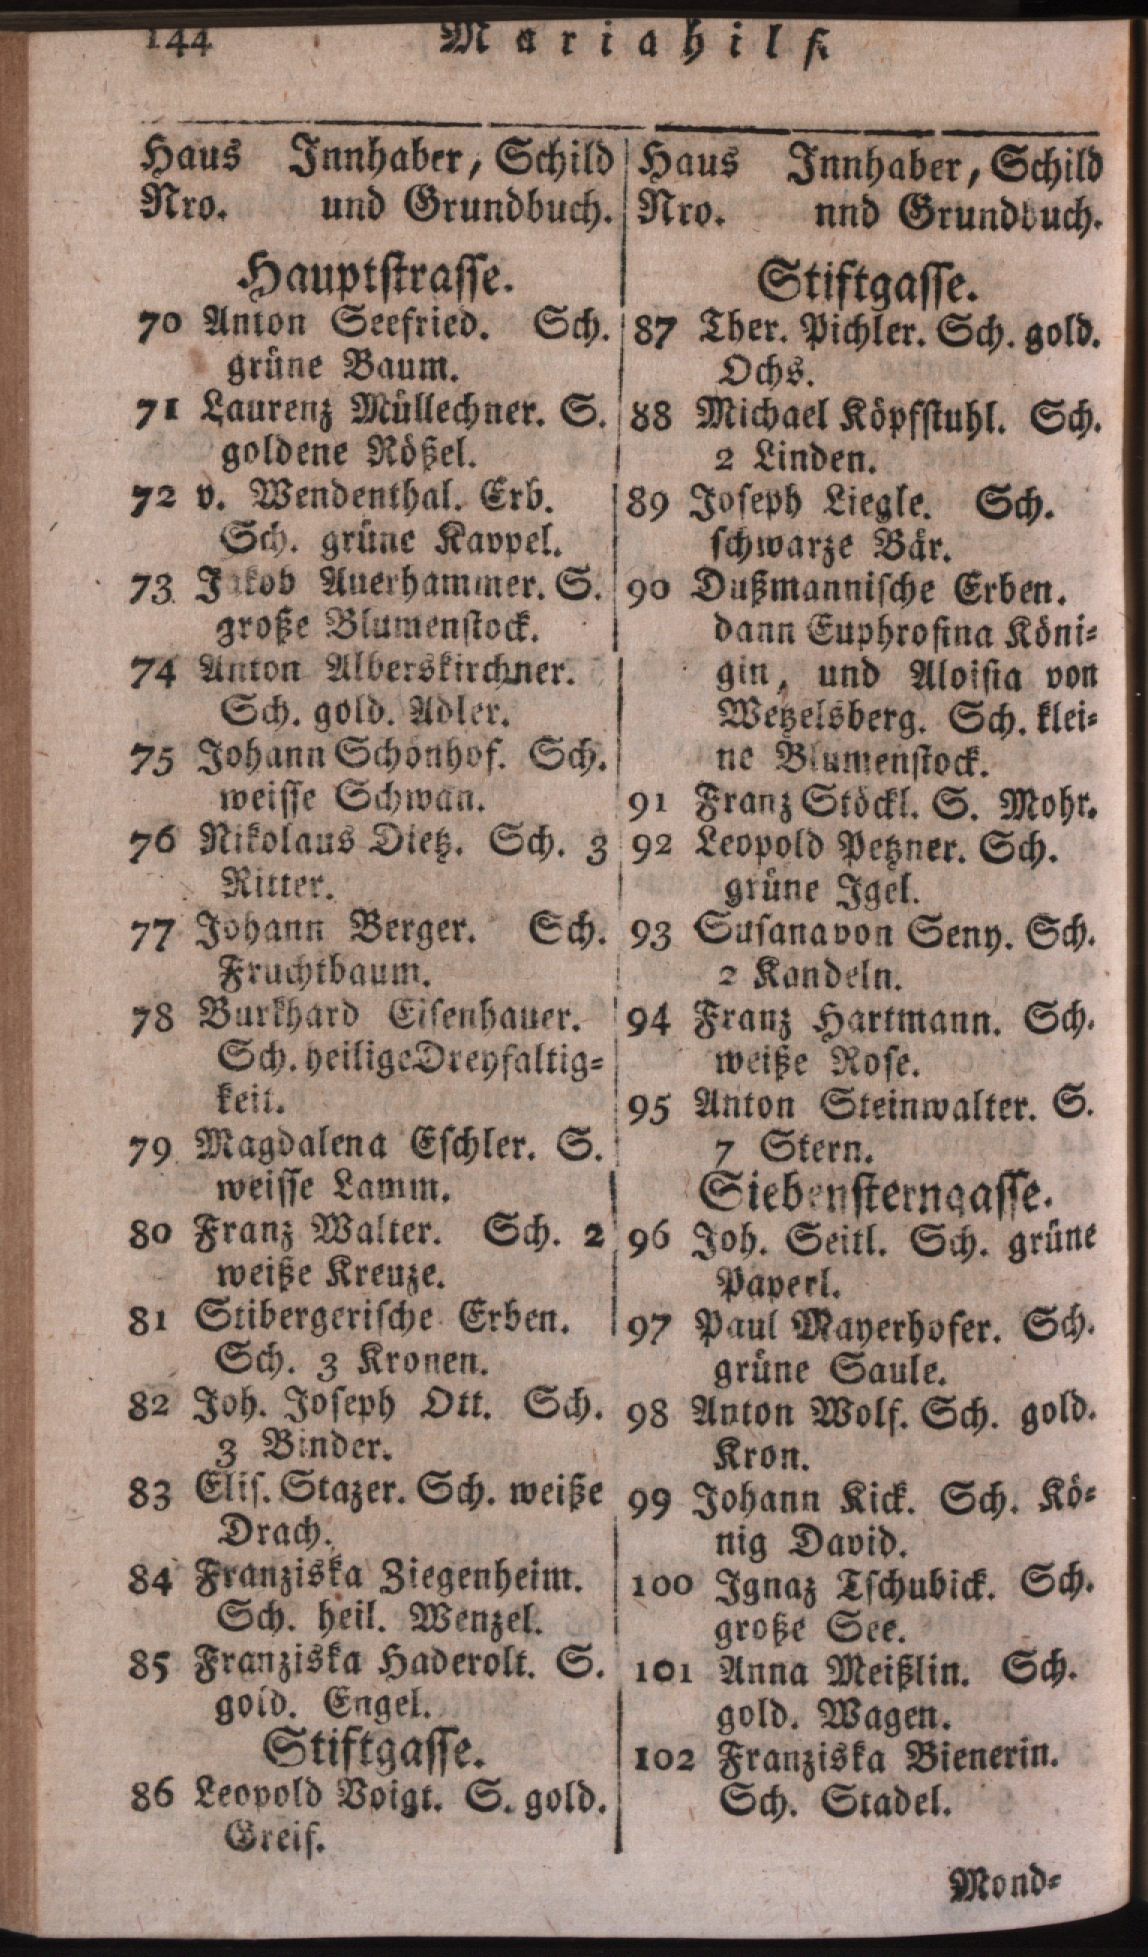 144 Mariahilf.
Haus Innhaber, Schild
Nro. und Grundbuch.
Hauptstrasse.
70 Anton Seefried. Sch.
grüne Baum.
71 Laurenz Müllechner. S.
goldene Rößel.
72 v. Wendenthal. Erb.
Sch. grüne Kappel.
73 Jakob Auerhammer. S.
große Blumenstock.
74 Anton Alberskirchner.
Sch. gold. Adler.
75 Johann Schönhof. Sch.
weisse Schwan.
76 Nikolaus Dietz. Sch. 3
Ritter.
77 Johann Berger. Sch.
Fruchtbaum.
78 Burkhard Eisenhauer.
Sch. heilige Dreyfaltig=
keit.
79 Magdalena Eschler. S.
weisse Lamm.
80 Franz Walter. Sch. 2
weiße Kreuze.
81 Stibergerische Erben.
Sch. 3 Kronen.
82 Joh. Joseph Ott. Sch.
3 Binder.
83 Elis. Stazer. Sch. weiße
Drach.
84 Franziska Ziegenheim.
Sch. heil. Wenzel.
85 Franziska Haderolt. S.
gold. Engel.
Stiftgasse.
86 Leopold Voigt. S. gold.
Greif.
Haus Innhaber, Schild
Nro. nnd Grundbuch.
Stiftgasse.
87 Ther. Pichler. Sch. gold.
Ochs.
88 Michael Köpfstuhl. Sch.
2 Linden.
89 Joseph Liegle. Sch.
schwarze Bär.
90 Dußmannische Erben.
dann Euphrosina Köni=
gin, und Aloisia von
Wetzelsberg. Sch. klei=
ne Blumenstock.
91 Franz Stöckl. S. Mohr.
92 Leopold Petzner. Sch.
grüne Igel.
93 Susana von Seny. Sch.
2 Kandeln.
94 Franz Hartmann. Sch.
weiße Rose.
95 Anton Steinwalter. S.
7 Stern.
Siebensterngasse.
96 Joh. Seitl. Sch. grüne
Paperl.
97 Paul Mayerhofer. Sch.
grüne Saule.
98 Anton Wolf. Sch. gold.
Kron.
99 Johann Kick. Sch. Kö=
nig David.
100 Ignaz Tschubick. Sch.
große See.
101 Anna Meißlin. Sch.
gold. Wagen.
102 Franziska Bienerin.
Sch. Stadel.
Mond=